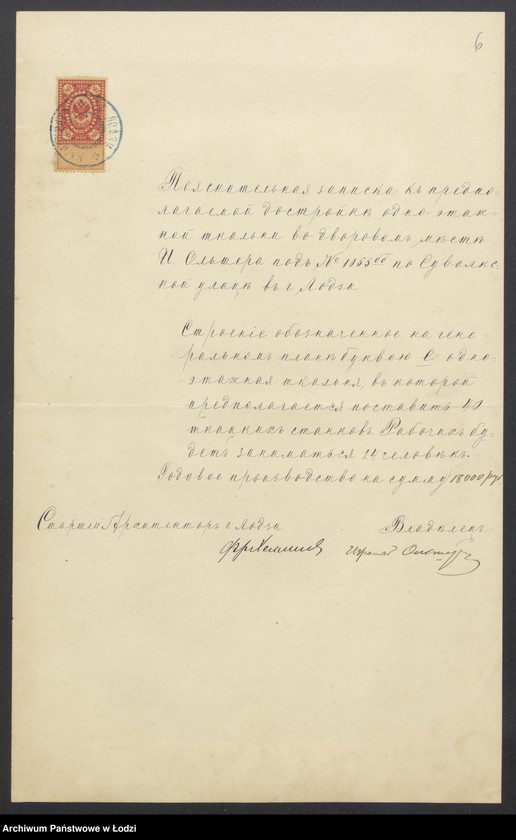 6
Пояснительная записка къ предпо-
лагаемой достройкѣ одно-этаж-
ной ткальни во дворовомъ мѣстѣ
И Ольшера подъ № 1155бб по Сувалкс-
ной улицѣ въ г Лодзи
Строеніе обозначенное на гене-
ральномъ планѣ буквою С одно-
этажная ткальня, въ которой
предполагается поставить 40
ткацкихъ станковъ. Рабочихъ бу-
детъ заниматься 24 человѣкъ.
Годовое производство на сумму 18000 руб
Старшій Архитекторъ г Лодзи
Владѣлецъ
Archiwum Państwowe w Łodzi